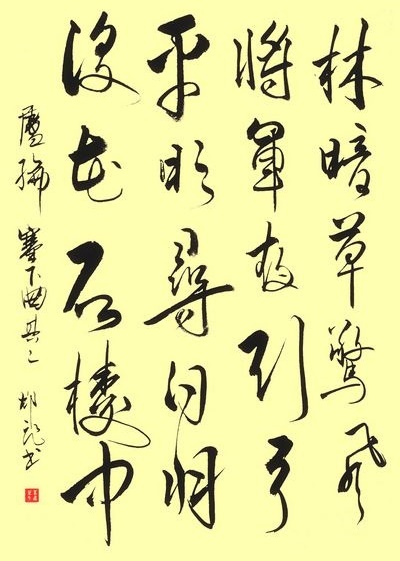 林暗草驚風
將軍夜引弓
平明尋白羽
没在石棱中
盧綸 塞下曲其二 書